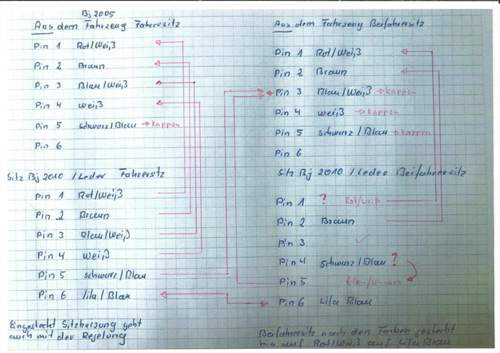 Bj 2005
Aus dem Fahrzeug Fahrersitz
Pin 1 Rot/Weiß
Pin 2 Braun
Pin 3 Blau/Weiß
Pin 4 weiß
Pin 5 schwarz/Blau → kappen
Pin 6
Sitz Bj 2010 / Leder Fahrersitz
Pin 1 Rot/Weiß
Pin 2 Braun
Pin 3 Blau/Weiß
Pin 4 Weiß
Pin 5 schwarz/Blau
Pin 6 lila/Blau
Eingesteckt Sitzheizung geht
auch mit der Regelung
Aus dem Fahrzeug Beifahrersitz
Pin 1 Rot/Weiß
Pin 2 Braun
Pin 3 Blau/Weiß → kappen
Pin 4 weiß → kappen
Pin 5 schwarz/Blau → kappen
Pin 6
Sitz Bj 2010 / Leder Beifahrersitz
Pin 1 ? Rot/Weiß
Pin 2 Braun
Pin 3
Pin 4 schwarz/Blau ?
Pin 5
Pin 6 Lila Blau
Beifahrersitz nach den Farben gesteckt
bis auf Rot/Weiß auf Lila/Blau